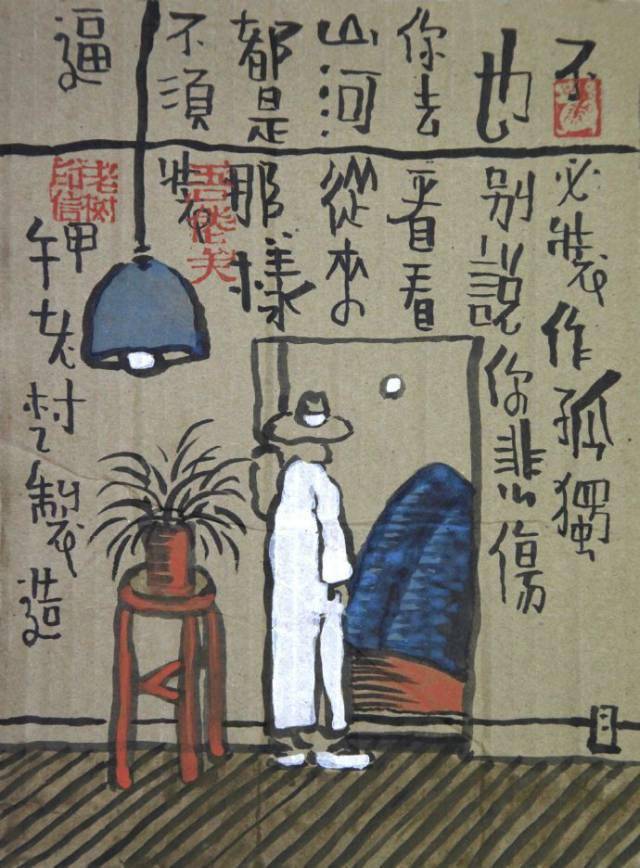 不必裝作孤獨
也别說你悲傷
你去看看
山河從來
都是那樣
不須裝
逼
甲
午老树製造
老树
印信